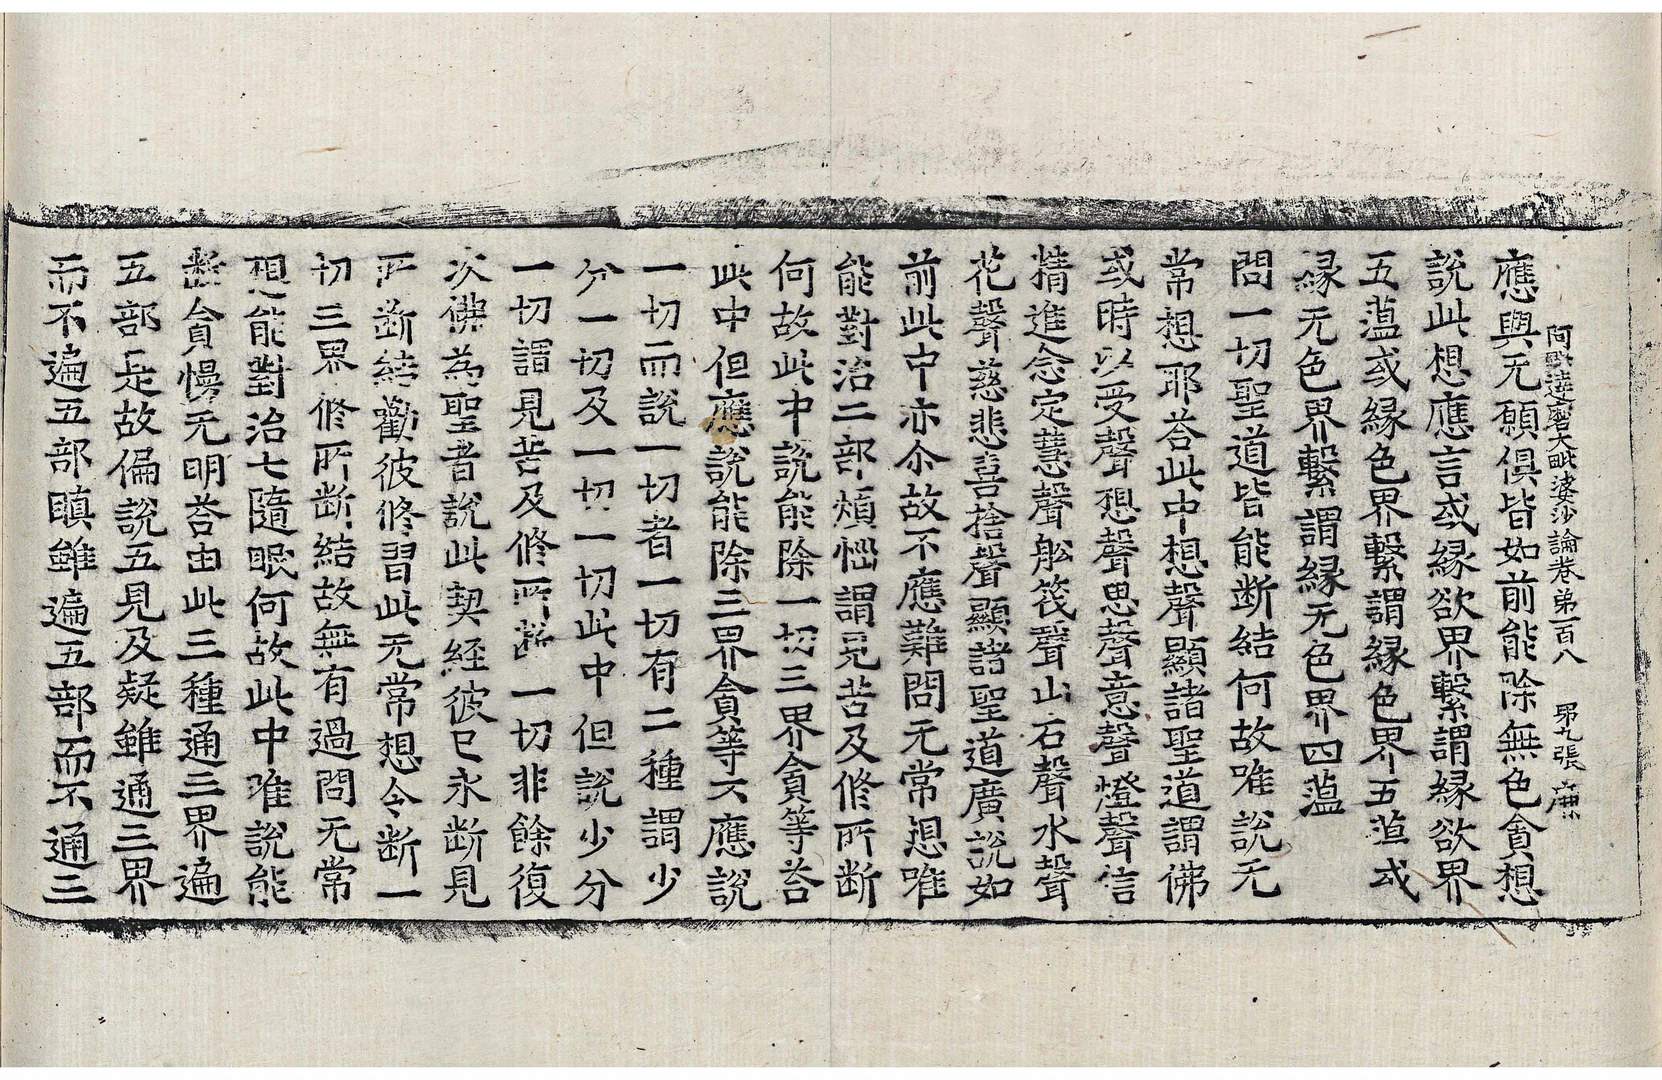 阿毗達磨大毗婆沙論卷第一百八 第九張 廉
應與无願俱皆如前能除無色貪想
說此想應言或緣欲界繫謂緣欲界
五蕰或緣色界繫謂緣色界五蕰或
緣无色界繫謂緣无色界四蕰
問一切聖道皆能断結何故唯說无
常想耶荅此中想聲顯諸聖道謂佛
或時以受聲想聲思聲意聲燈聲信
精進念定慧聲舩筏聲山石聲水聲
花聲慈悲喜捨聲顯諸聖道廣說如
前此中亦尒故不應難問无常想唯
能對治二部煩惱謂見苦及修所断
何故此中說能除一切三界貪等荅
此中但應說能除三界貪等不應說
一切而說一切者一切有二種謂少
分一切及一切一切此中但說少分
一切謂見苦及修所斷一切非餘復
次佛為聖者說此契經彼已永断見
所断結勸彼修習此无常想令断一
切三界修所断結故無有過問无常
想能對治七隨眠何故此中唯說能
斷貪慢无明荅由此三種通三界遍
五部是故偏說五見及疑雖通三界
而不遍五部瞋雖遍五部而不通三